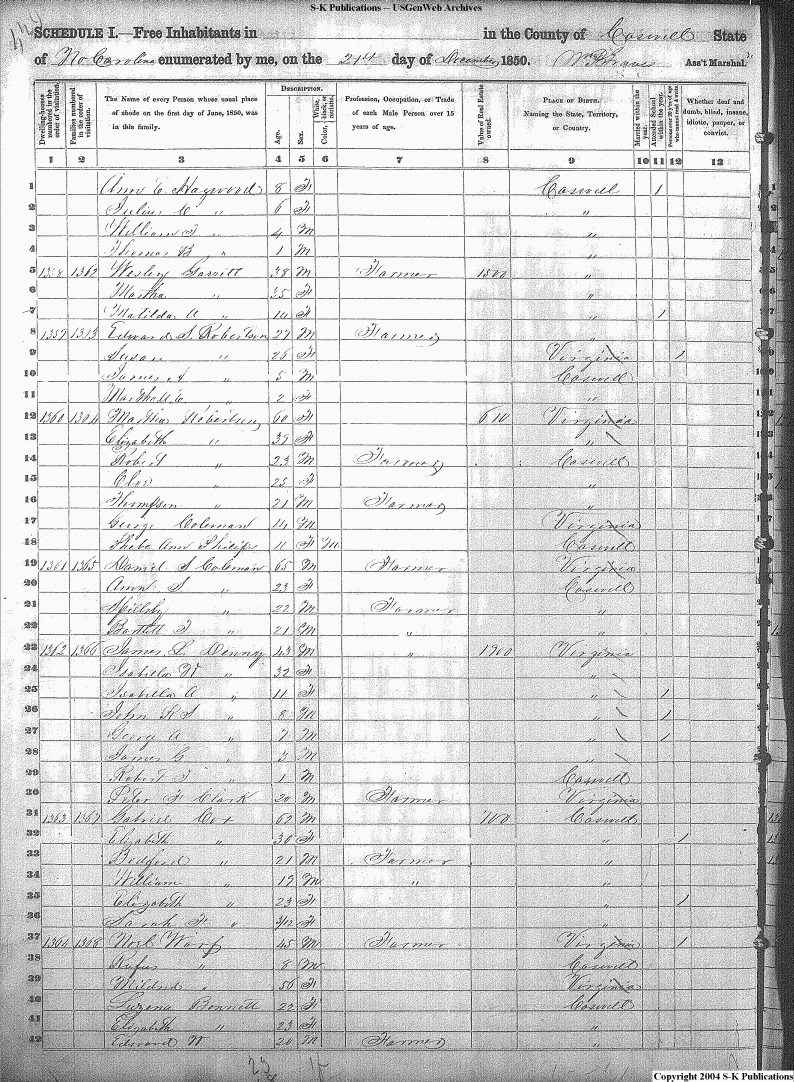 S-K Publications -- USGenWeb Archives
SCHEDULE I.—Free Inhabitants in " in the County of Caswell State
of No Carolina enumerated by me, on the 21st day of December, 1850. Wm Graves Ass't Marshal.
Dwelling-houses numbered in the order of visitation.
Families numbered in the order of visitation.
The Name of every Person whose usual place of abode on the first day of June, 1850, was in this family.
DESCRIPTION.
Age.
Sex.
Color, White, black, or mulatto.
Profession, Occupation, or Trade of each Male Person over 15 years of age.
Value of Real Estate owned.
PLACE OF BIRTH. Naming the State, Territory, or Country.
Married within the year.
Attended School within the year.
Persons over 20 y'rs of age who cannot read & write.
Whether deaf and dumb, blind, insane, idiotic, pauper, or convict.
1 2 3 4 5 6 7 8 9 10 11 12 13
1 Ann E Haywood 8 F Caswell 1
2 " 6 F "
3 William " 4 M "
4 Thomas B " 1 M "
5 1362 Wesley 38 M Farmer 1500 "
6 Martha " 35 F "
7 Matilda A " 14 F " 1
8 1359 1313 Edward S. Robertson 27 M Farmer "
9 Susan " 25 F Virginia 1
10 James A " 5 M Caswell
11 Marshall C " 2 F "
12 1360 1304 Martha Robertson 60 F 610 Virginia
13 Elizabeth " 37 F "
14 Robert " 23 M Farmer Caswell
15 " 25 F "
16 Thompson " 21 M Farmer "
17 George Coleman 14 M Virginia
18 Phebe Ann Philips 11 F M Caswell
19 1361 1365 Daniel S Coleman 65 M Farmer Virginia
20 Ann S " 23 F Caswell
21 " 22 M Farmer "
22 Bartlett F " 21 M " "
23 1362 1366 James L Denny 43 M " 1900 Virginia
24 Isabella W " 32 F "
25 Isabella A " 11 F " 1
26 John R S " 8 M " 1
27 George A " 7 M " 1
28 James G " 3 M "
29 Robert T " 1 M Caswell
30 Peter F Clark 20 M Farmer Virginia
31 1363 1367 Gabriel Cox 62 M 700 Caswell
32 Elizabeth " 30 F " 1
33 Bedford " 21 M Farmer "
34 William " 19 M " "
35 Elizabeth " 23 F " 1
36 Sarah F " 3/12 F "
37 1364 1368 Worf 45 M Farmer Virginia 1
38 Rufus " 8 M Caswell
39 Mildred " 56 F Virginia
40 Bennett 22 F Caswell
41 Elizabeth " 23 F "
42 Edward W 20 M Farmer "
Copyright 2004 S-K Publications